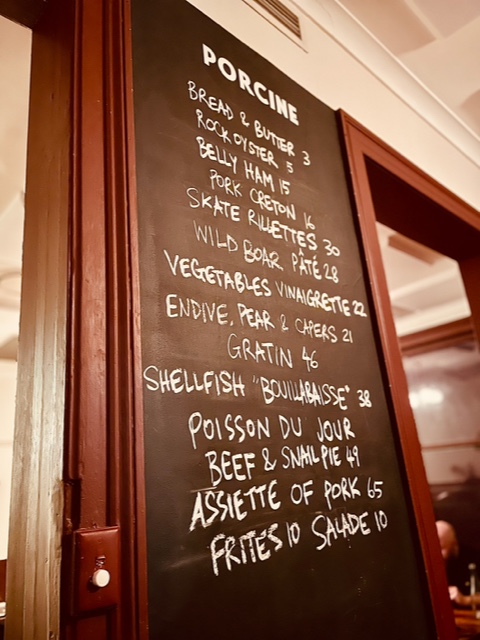 PORCINE
BREAD & BUTTER 3
ROCK OYSTER 5
BELLY HAM 15
PORK CRETON 16
SKATE RILLETTES 30
WILD BOAR PÂTÉ 28
VEGETABLES VINAIGRETTE 22
ENDIVE, PEAR & CAPERS 21
GRATIN 46
SHELLFISH "BOUILLABAISSE" 38
POISSON DU JOUR
BEEF & SNAIL PIE 49
ASSIETTE OF PORK 65
FRITES 10 SALADE 10